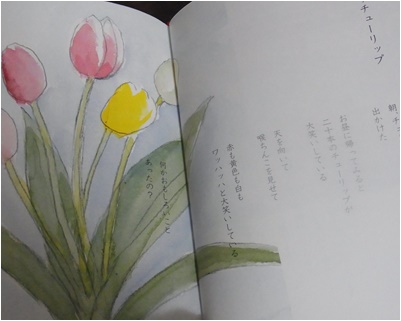 チューリップ
朝 チュ
出かけた
お昼に帰ってみると
二十本のチューリップが
大笑いしている
天を仰いで
喉ちんこを見せて
赤も黄色も白も
ワッハッハと大笑いしている
何がおもしろいこと
あったの?